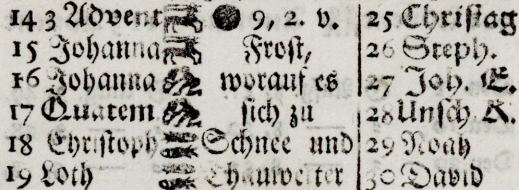 14 3 Advent 9, 2. v. 25 Christag
15 Johanna Frost, 26 Steph.
16 Johanna worauf es 27 Joh. E.
17 Quatem sich zu 28 Unsch. K.
18 Christoph Schnee und 29 Noah
19 Loth Thauwetter 30 David